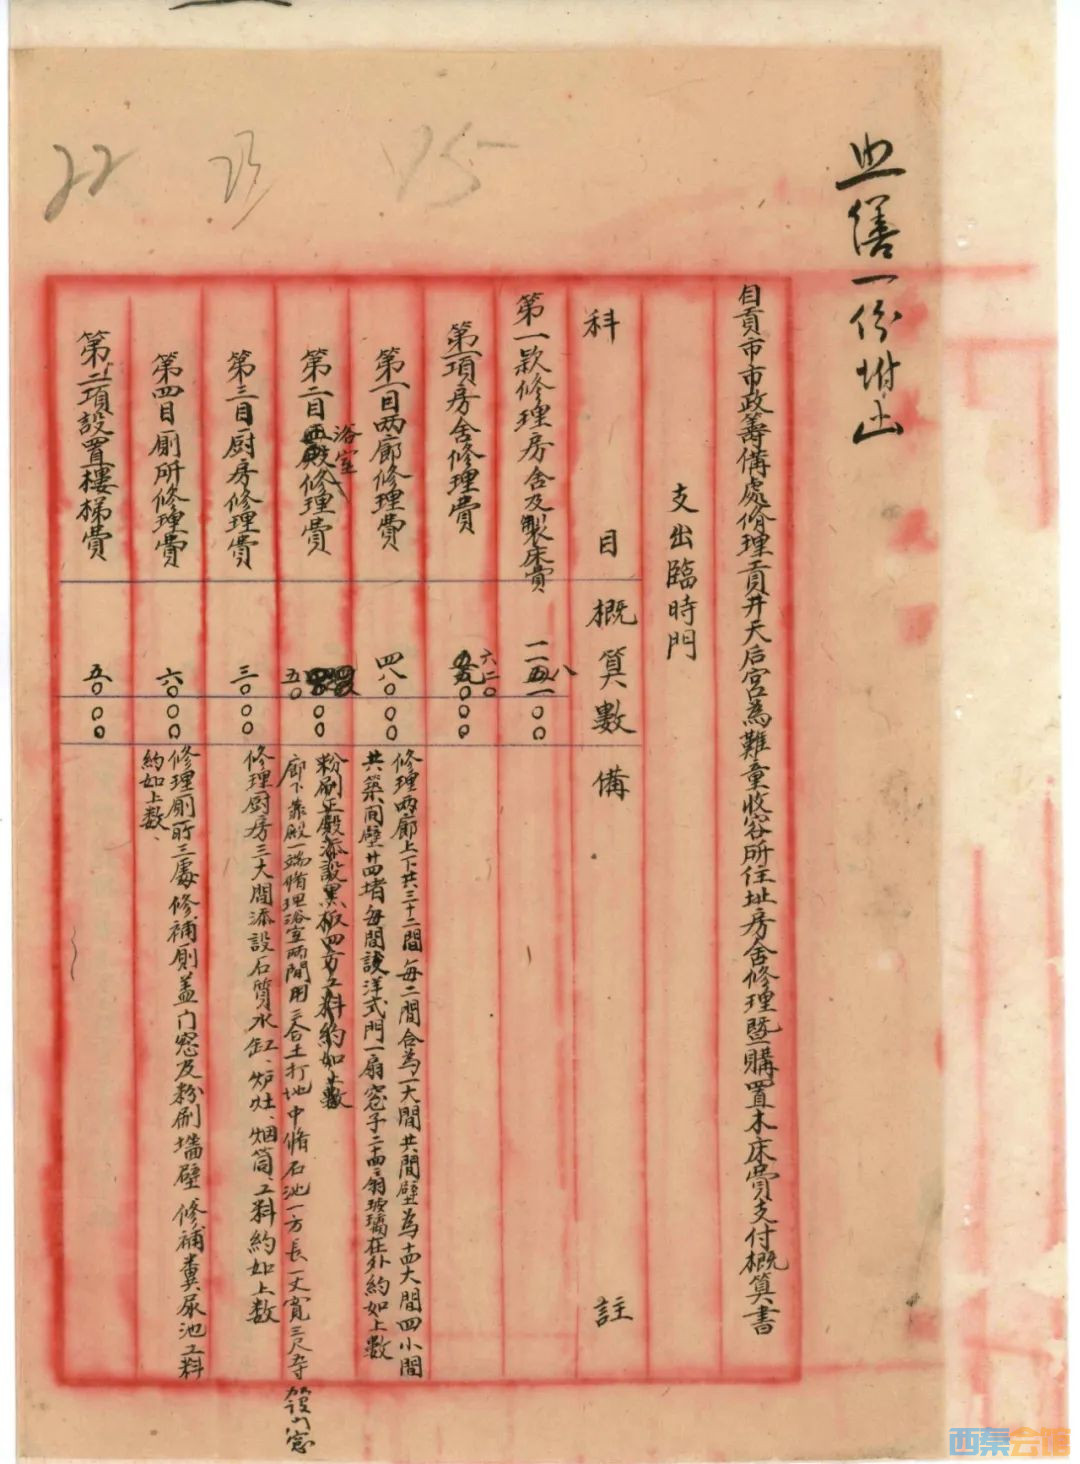 照缮一份坿上
自貢市市政籌備處修理貢井天后宮為難童收容所住址房舍修理暨購置木床費支付概算書
支出臨時門
科目 概算數 備註
第一款修理房舍及製床費 一一八一00
第一項房舍修理費 六二0000
第一目兩廊修理費 四八000 修理兩廊上下共三十二間每二間合為一大間共間壁為十四大間四小間
共築間壁廿四堵每間設洋式門一扇窓子二十四扇玻璃在外約如上數
第二目浴室修理費 五000 粉刷正殿添設黑板四方工料約如上數
廊下靠殿一端脩理浴室兩間用三合土打地中脩石池一方長一丈寬三尺 並設門窓
第三目厨房修理費 三000 修理厨房三大間添設石質水缸、炉灶、烟筒、工料約如上数
第四目厠所修理費 六000 修理厠所三處修補厠蓋门窓及粉刷墻壁修補糞尿池工料
約如上数、
第二項設置樓梯費 五000
22
75
西秦会馆